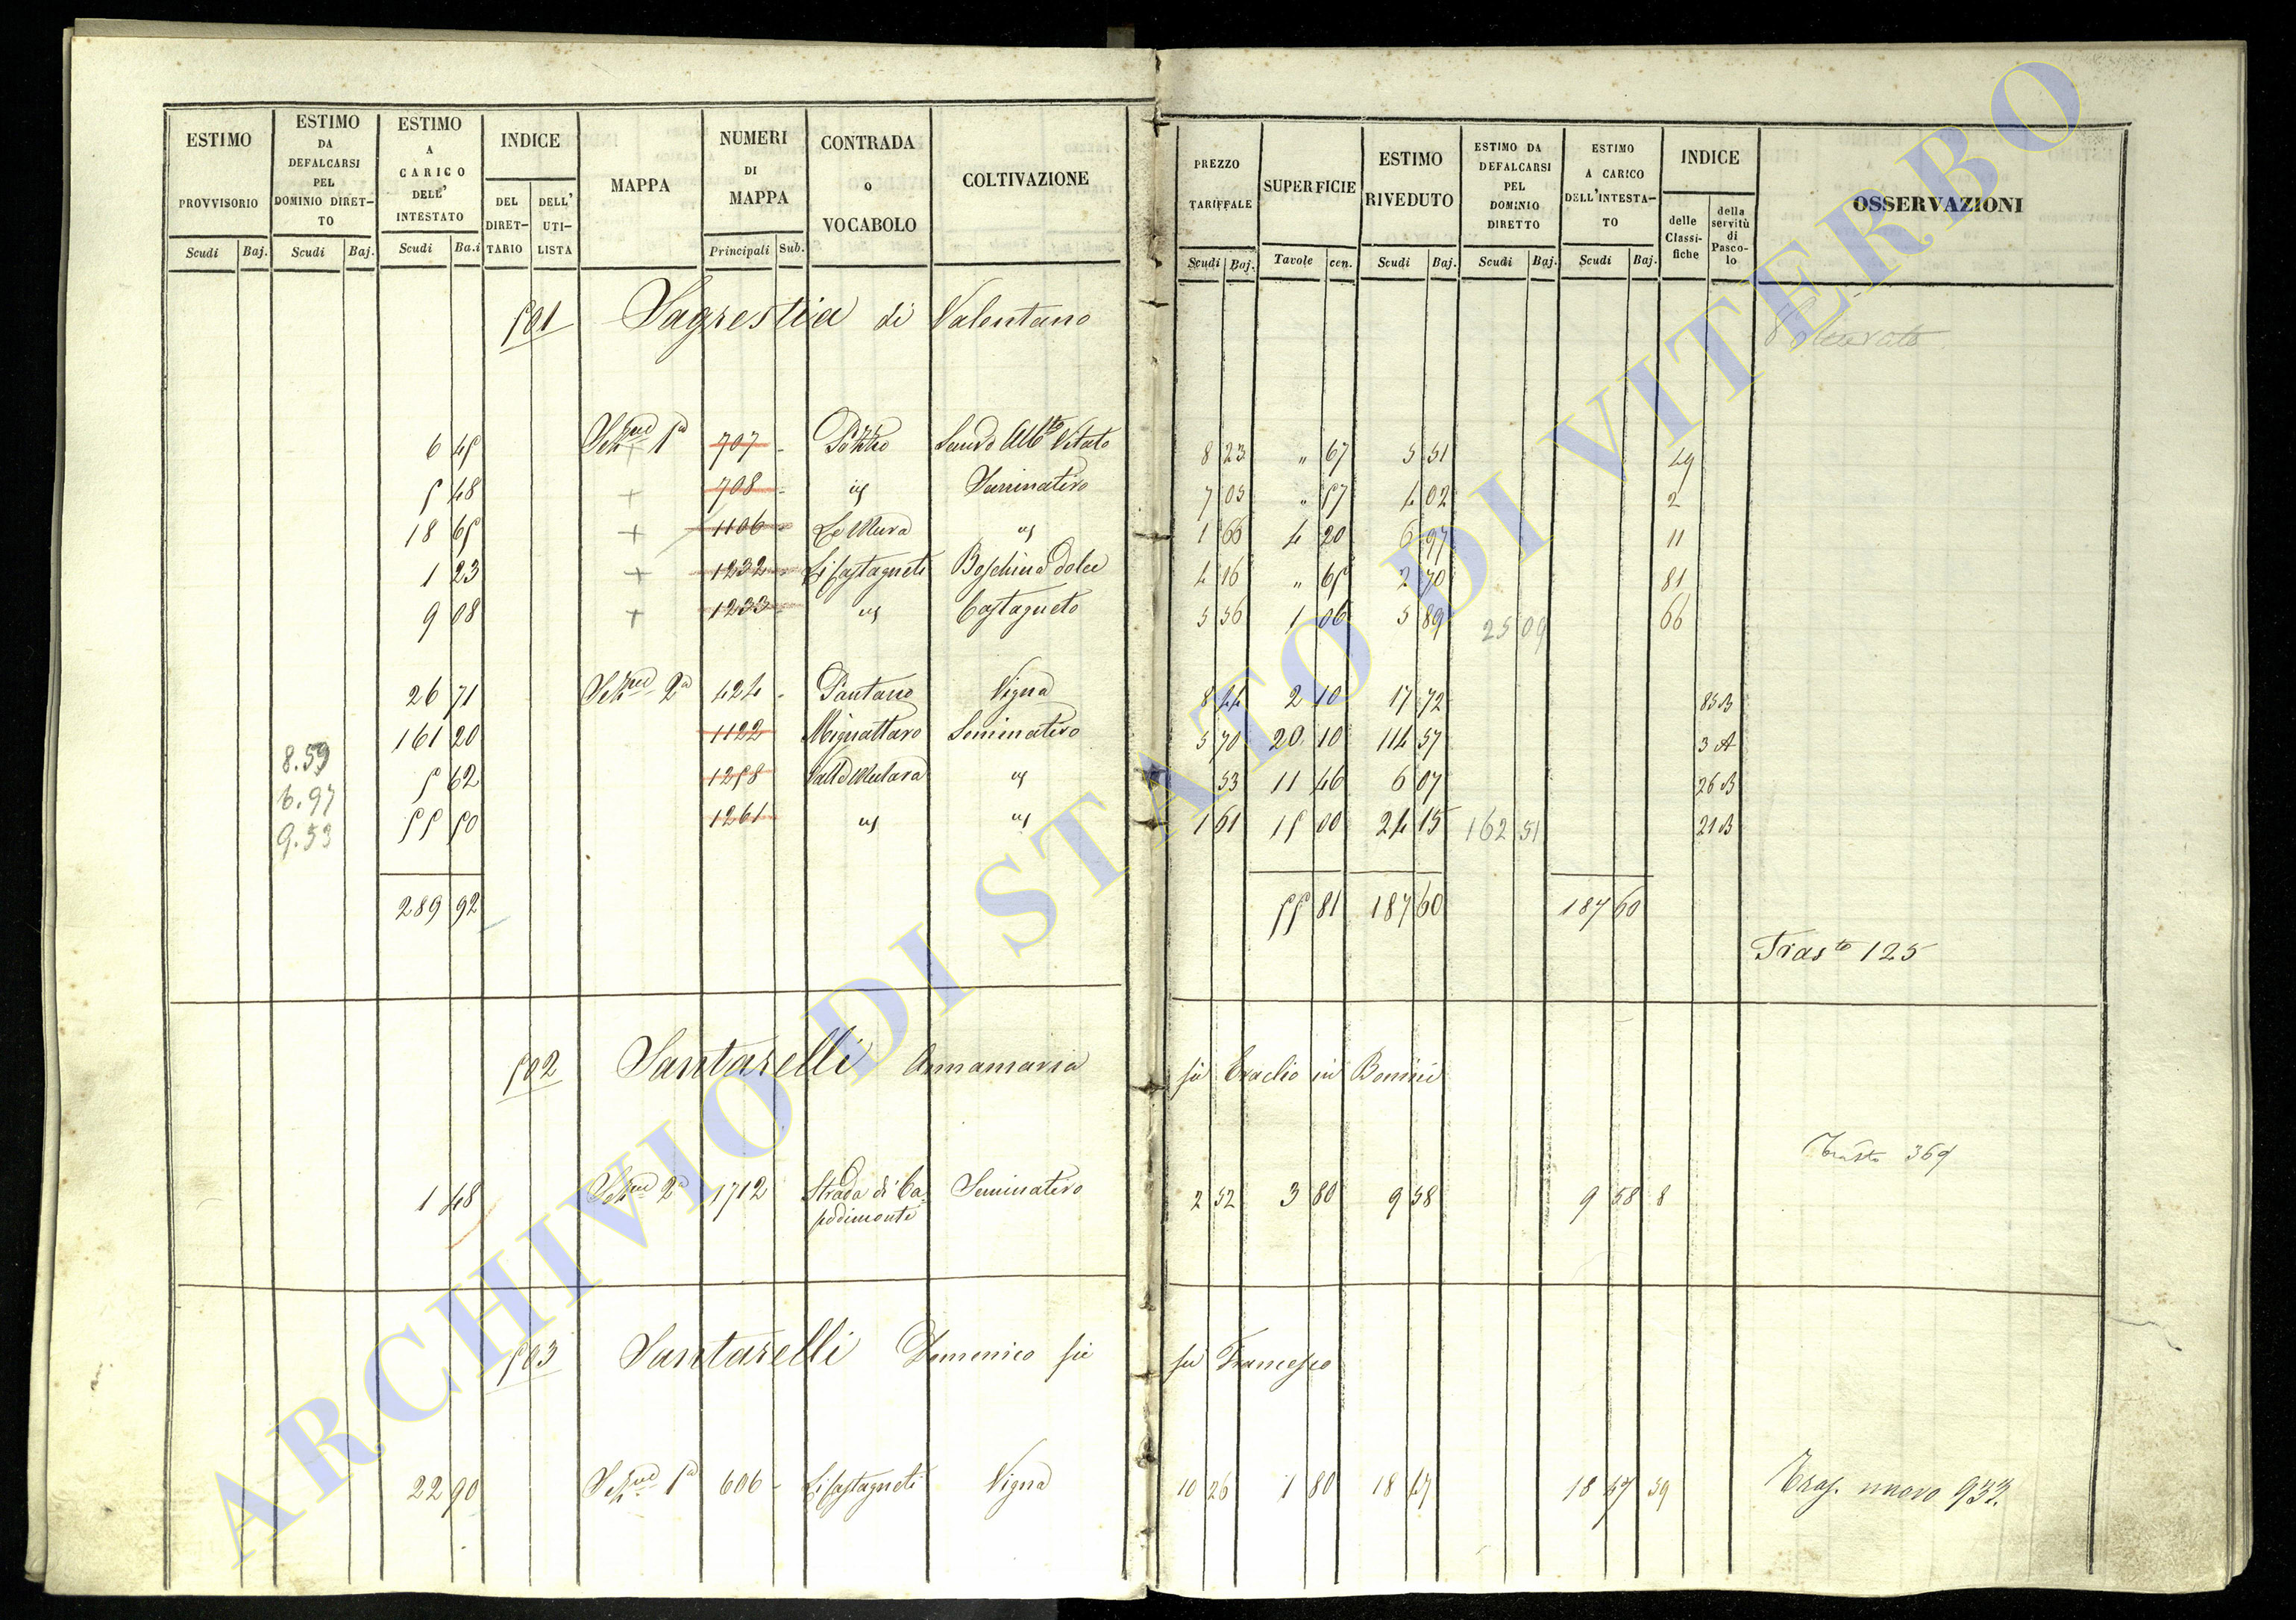 ESTIMO PROVVISORIO
Scudi Baj.
ESTIMO DA DEFALCARSI PEL DOMINIO DIRET-TO
Scudi Baj.
ESTIMO A CARICO DELL' INTESTATO
Scudi Ba.i
INDICE
DEL DIRET-TARIO
DELL' UTI-LISTA
MAPPA
NUMERI DI MAPPA
Principali Sub.
CONTRADA o VOCABOLO
COLTIVAZIONE
PREZZO TARIFFALE
Scudi Baj.
SUPERFICIE
Tavole cen.
ESTIMO RIVEDUTO
Scudi Baj.
ESTIMO DA DEFALCARSI PEL DOMINIO DIRETTO
Scudi Baj.
ESTIMO A CARICO DELL'INTESTA-TO
Scudi Baj.
INDICE
delle Classi-fiche
della servitù di Pasco-lo
OSSERVAZIONI
501 Sagrestia di Valentano
6 45 1a 707 - Vitato 8 23 " 67 5 51 49
5 48 + 708 - id Seminativo 7 05 " 57 4 02 2
18 65 + 1106 Le Mura id 1 66 4 20 6 97 11
1 23 + 1232 - Li Castagneti Boschina dolce 4 16 " 65 2 70 81
9 08 + 1233 - id Castagneto 5 56 1 06 5 89 25 09 66
26 71 2a 424 - Pantano Vigna 8 44 2 10 17 72 85 B
161 20 1122 Mignattaro Seminativo 5 70 20 10 114 57 3 A
8.59 5 62 1258 id 53 11 46 6 07 26 B
6.97 55 50 1261 id id 1 61 15 00 24 15 162 51 21 B
9.53
289 92 55 81 187 60 187 60
Trasto 125
502 Santarelli Annamaria fu Eraclio in Bonini
Trasto 369
1 48 2a 1712 Strada di Ca- Seminativo 2 52 3 80 9 58 9 58 8
podimonte
503 Santarelli Domenico fu fu Francesco
22 90 1a 606 - Li Castagneti Vigna 10 26 1 80 18 47 18 47 59 Tras. nuovo 933.
ARCHIVIO DI STATO DI VITERBO